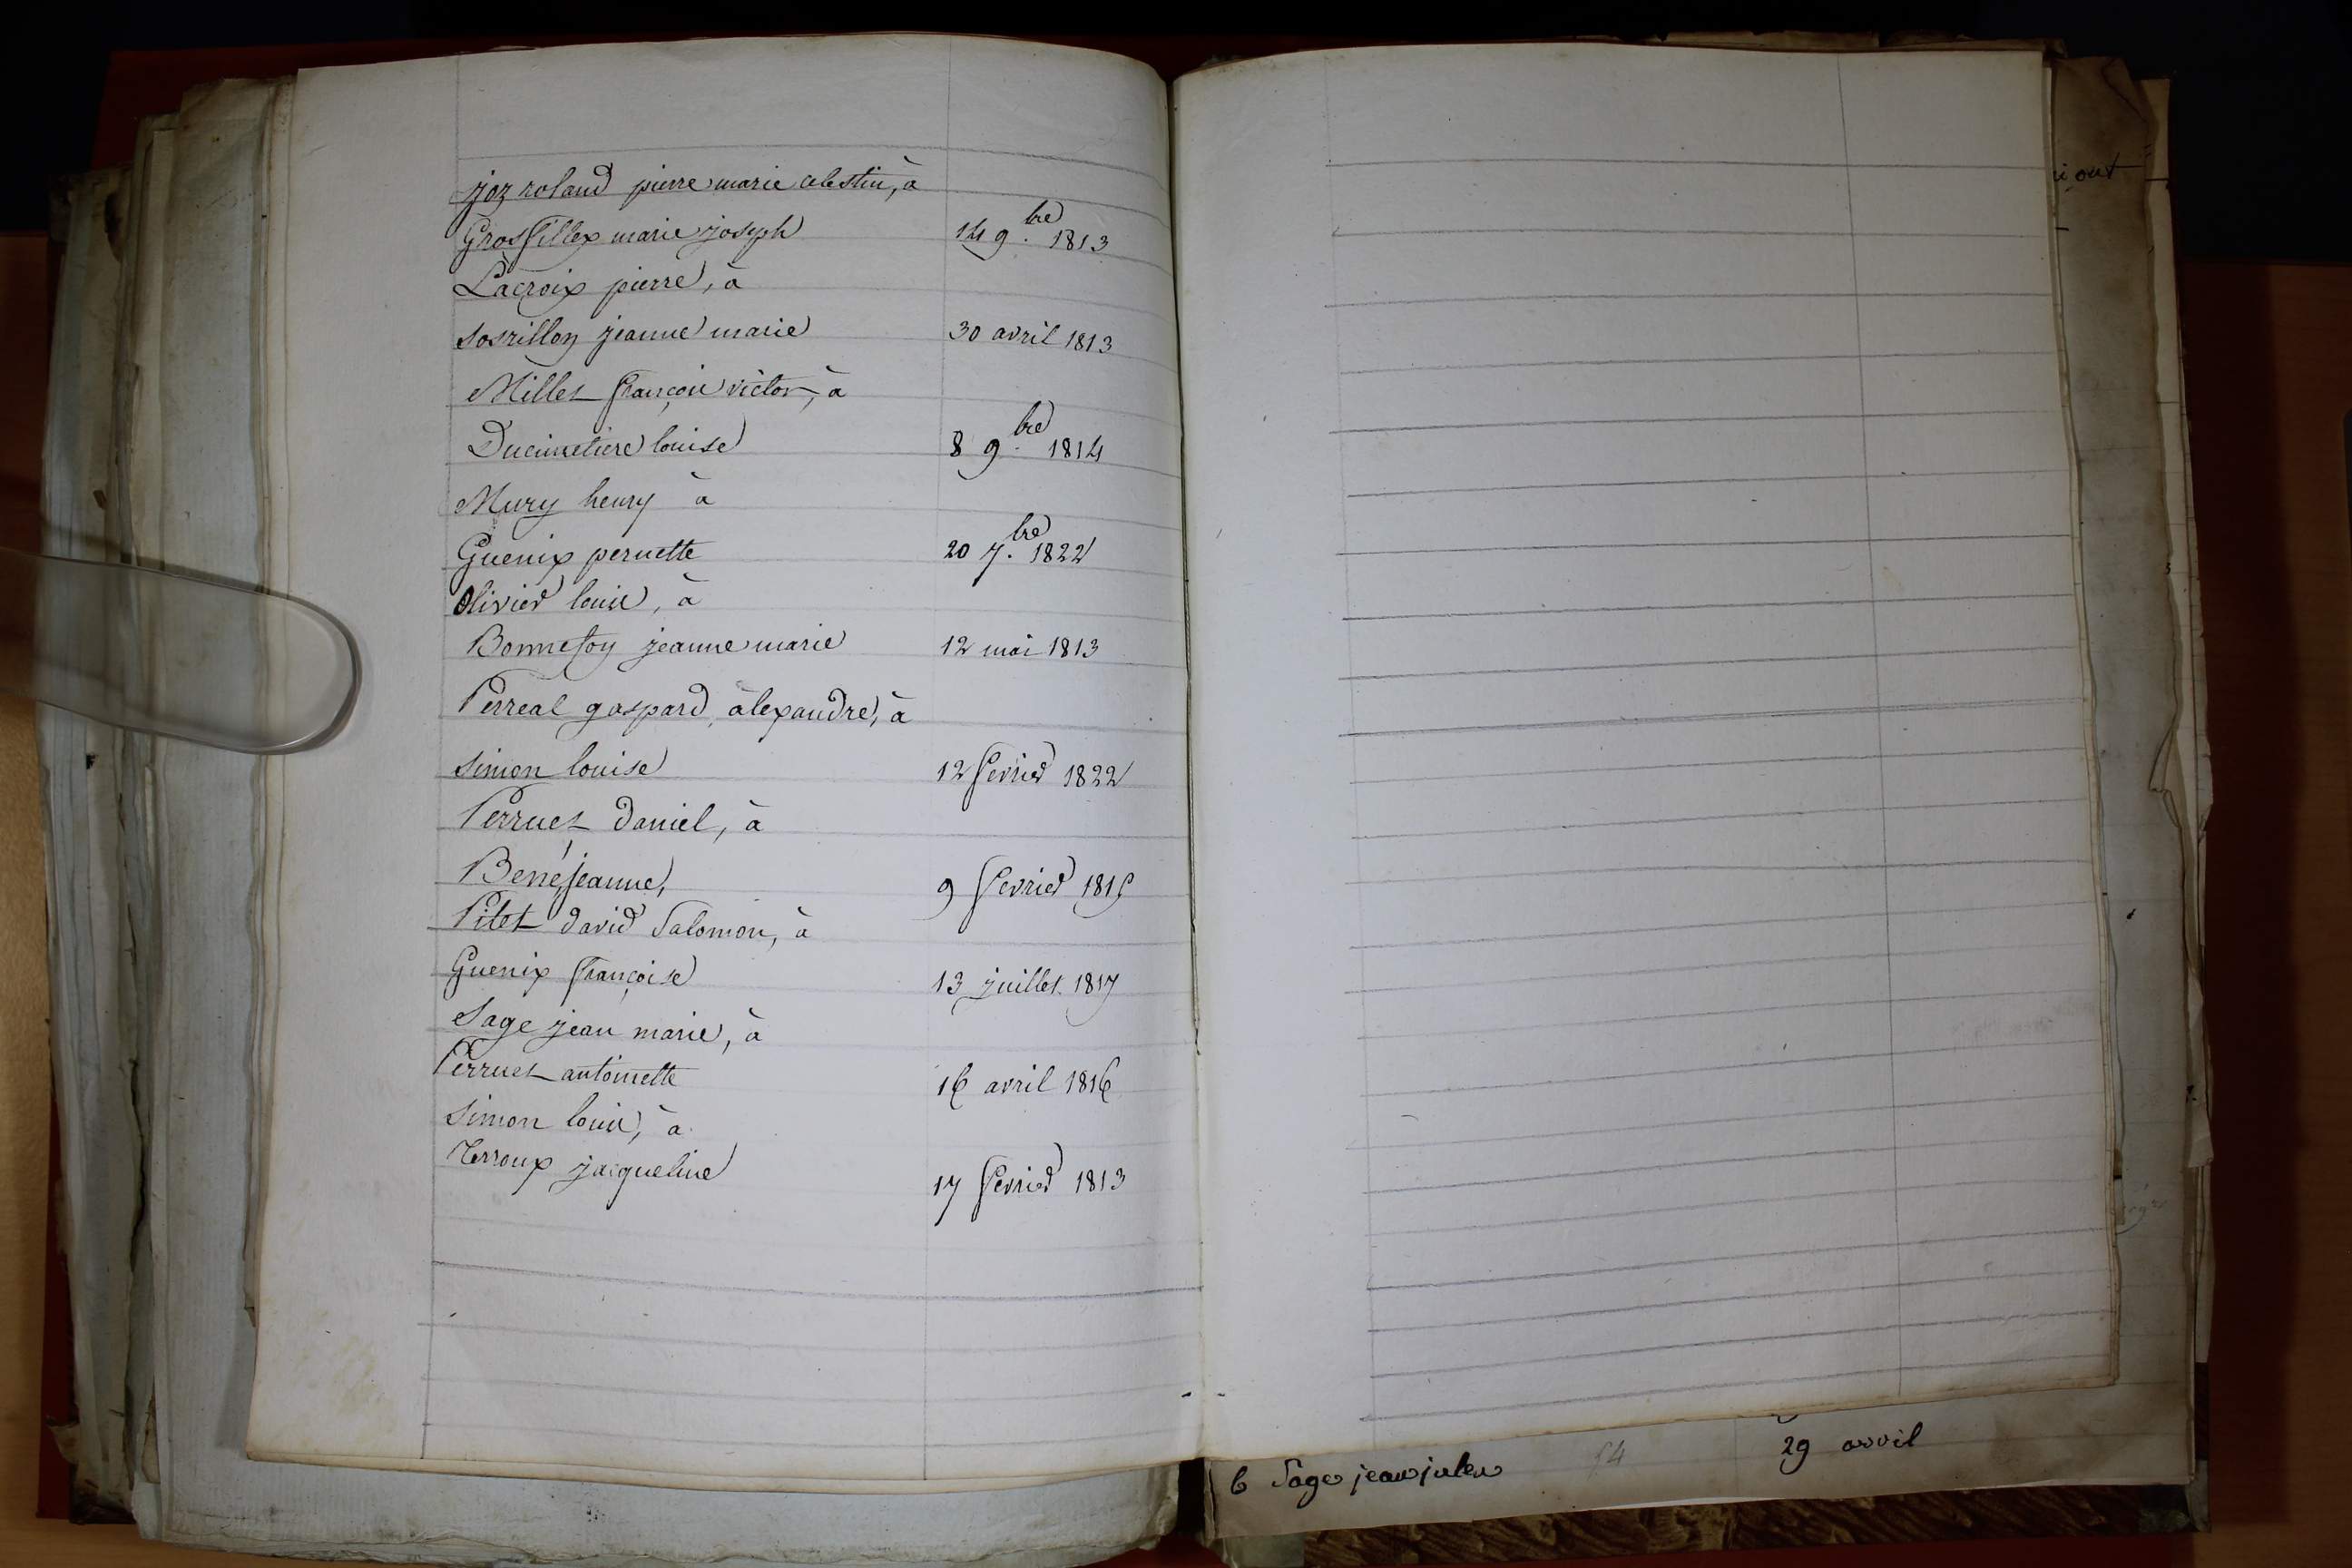 joz roland pierre marie celestin, à
Grosfillex marie joseph 14 9.bre 1813
Lacroix pierre, à
sorrillon jeanne marie 30 avril 1813
Millet françois victor, à
Ducimetiere louise 8 9.bre 1814
Mury henry à
Guenix pernette 20 7.bre 1822
Olivier louis, à
Bonnefoy jeanne marie 12 mai 1813
Perreal gaspard alexandre, à
simon louise 12 fevrier 1822
Perruet Daniel, à
Bené jeanne, 9 fevrier 1815
Pitet david Salomon, à
Guenix françoise 13 juillet 1817
Sage jean marie, à
Perruet antoinette 16 avril 1816
Simon louis, à
Terroux jacqueline 17 fevrier 1813
6 Sage jean jules 54 29 avril